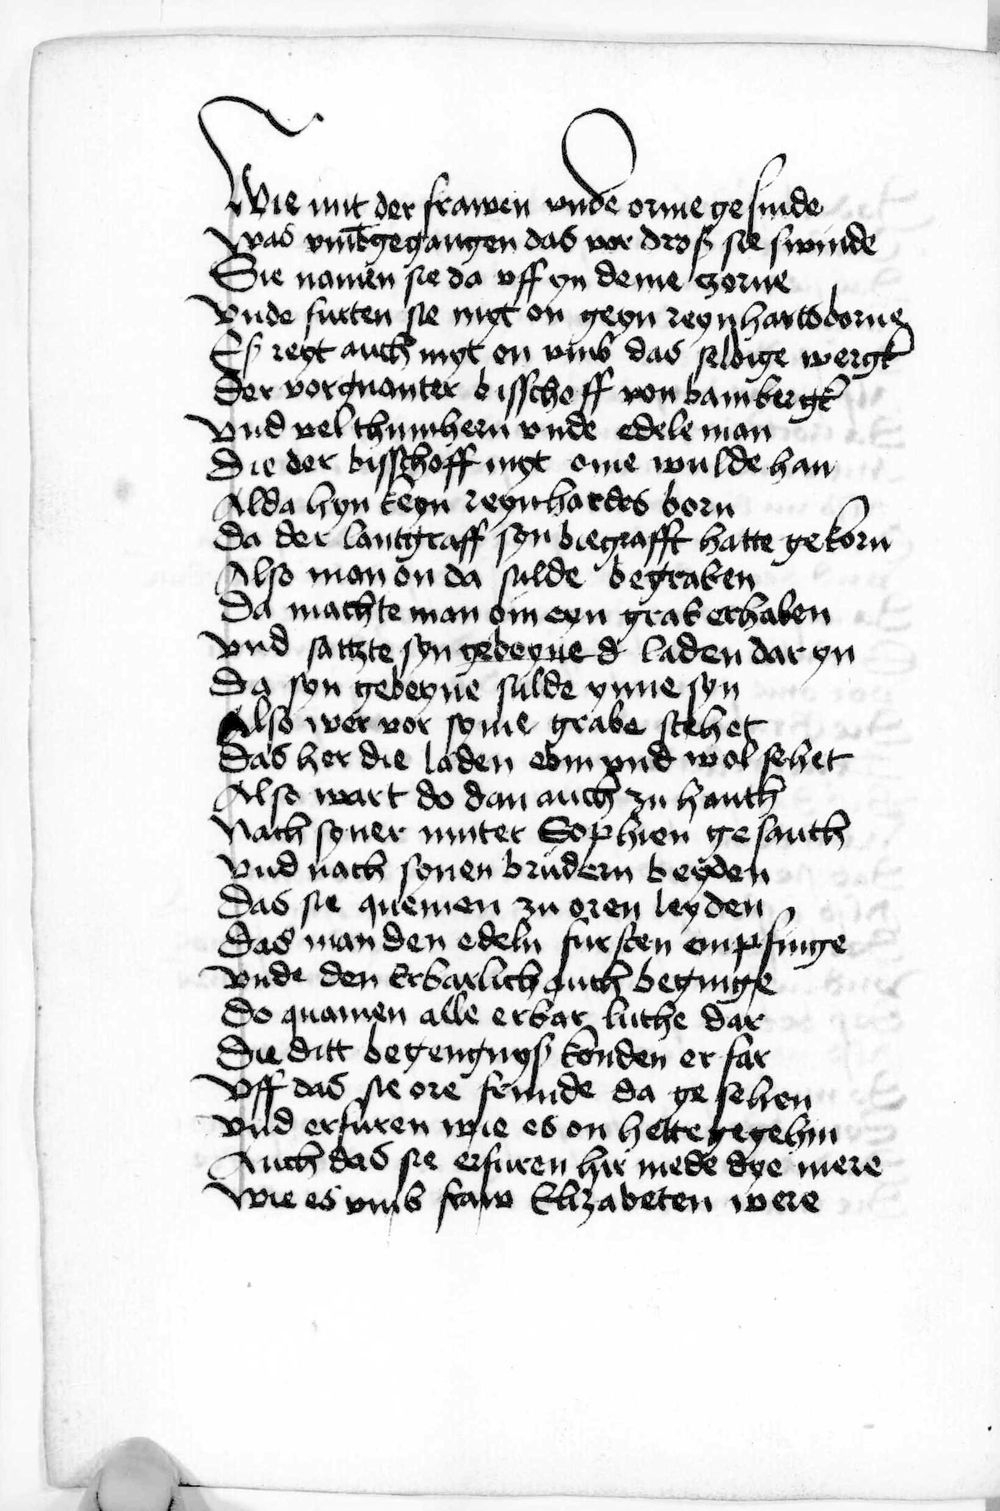 Wie mit der frawen vnde orme gesinde
Was vmbgegangen das vor droß sie swinde
Sie namen sie da vff yn deme zorne
Vnde furten sie myt on geyn reynhartsborne
Eß reyt auch myt on vmb das selbige wergk
Der vorgnanter bisschoff von bambergk
Vnd vel thumhern vnde edele man
Die der bisschoff myt ome wulde han
Alda hyn keyn reynhardes born
Da der lantgraff syn biegrafft hatte gekorn
Also man on da sulde begraben
Da machte man om eyn grab erhaben
Vnd satzte syn gebeyne d laden dar yn
Da syn gebeyne sulde ynne syn
Also wer vor syme grabe stehet
Das her die laden obin vnd wol sehet
Also wart do dan auch zu hanth
Nach syner muter Sophien gesanth
Vnd nach synen brudern beyden
Das sie quemen zu oren leyden
Das man den edeln fursten empfinge
Vnde den Erbarlich auch beginge
Do quamen alle erbar luthe dar
Die ditt begengnyß konden erfar
Vff das sie ore frunde da gesehen
Vnd erfuren wie es on hette gegehin
Auch das sie erfuren hir mede dye mere
Wie es vmb fraw Elizabeten were